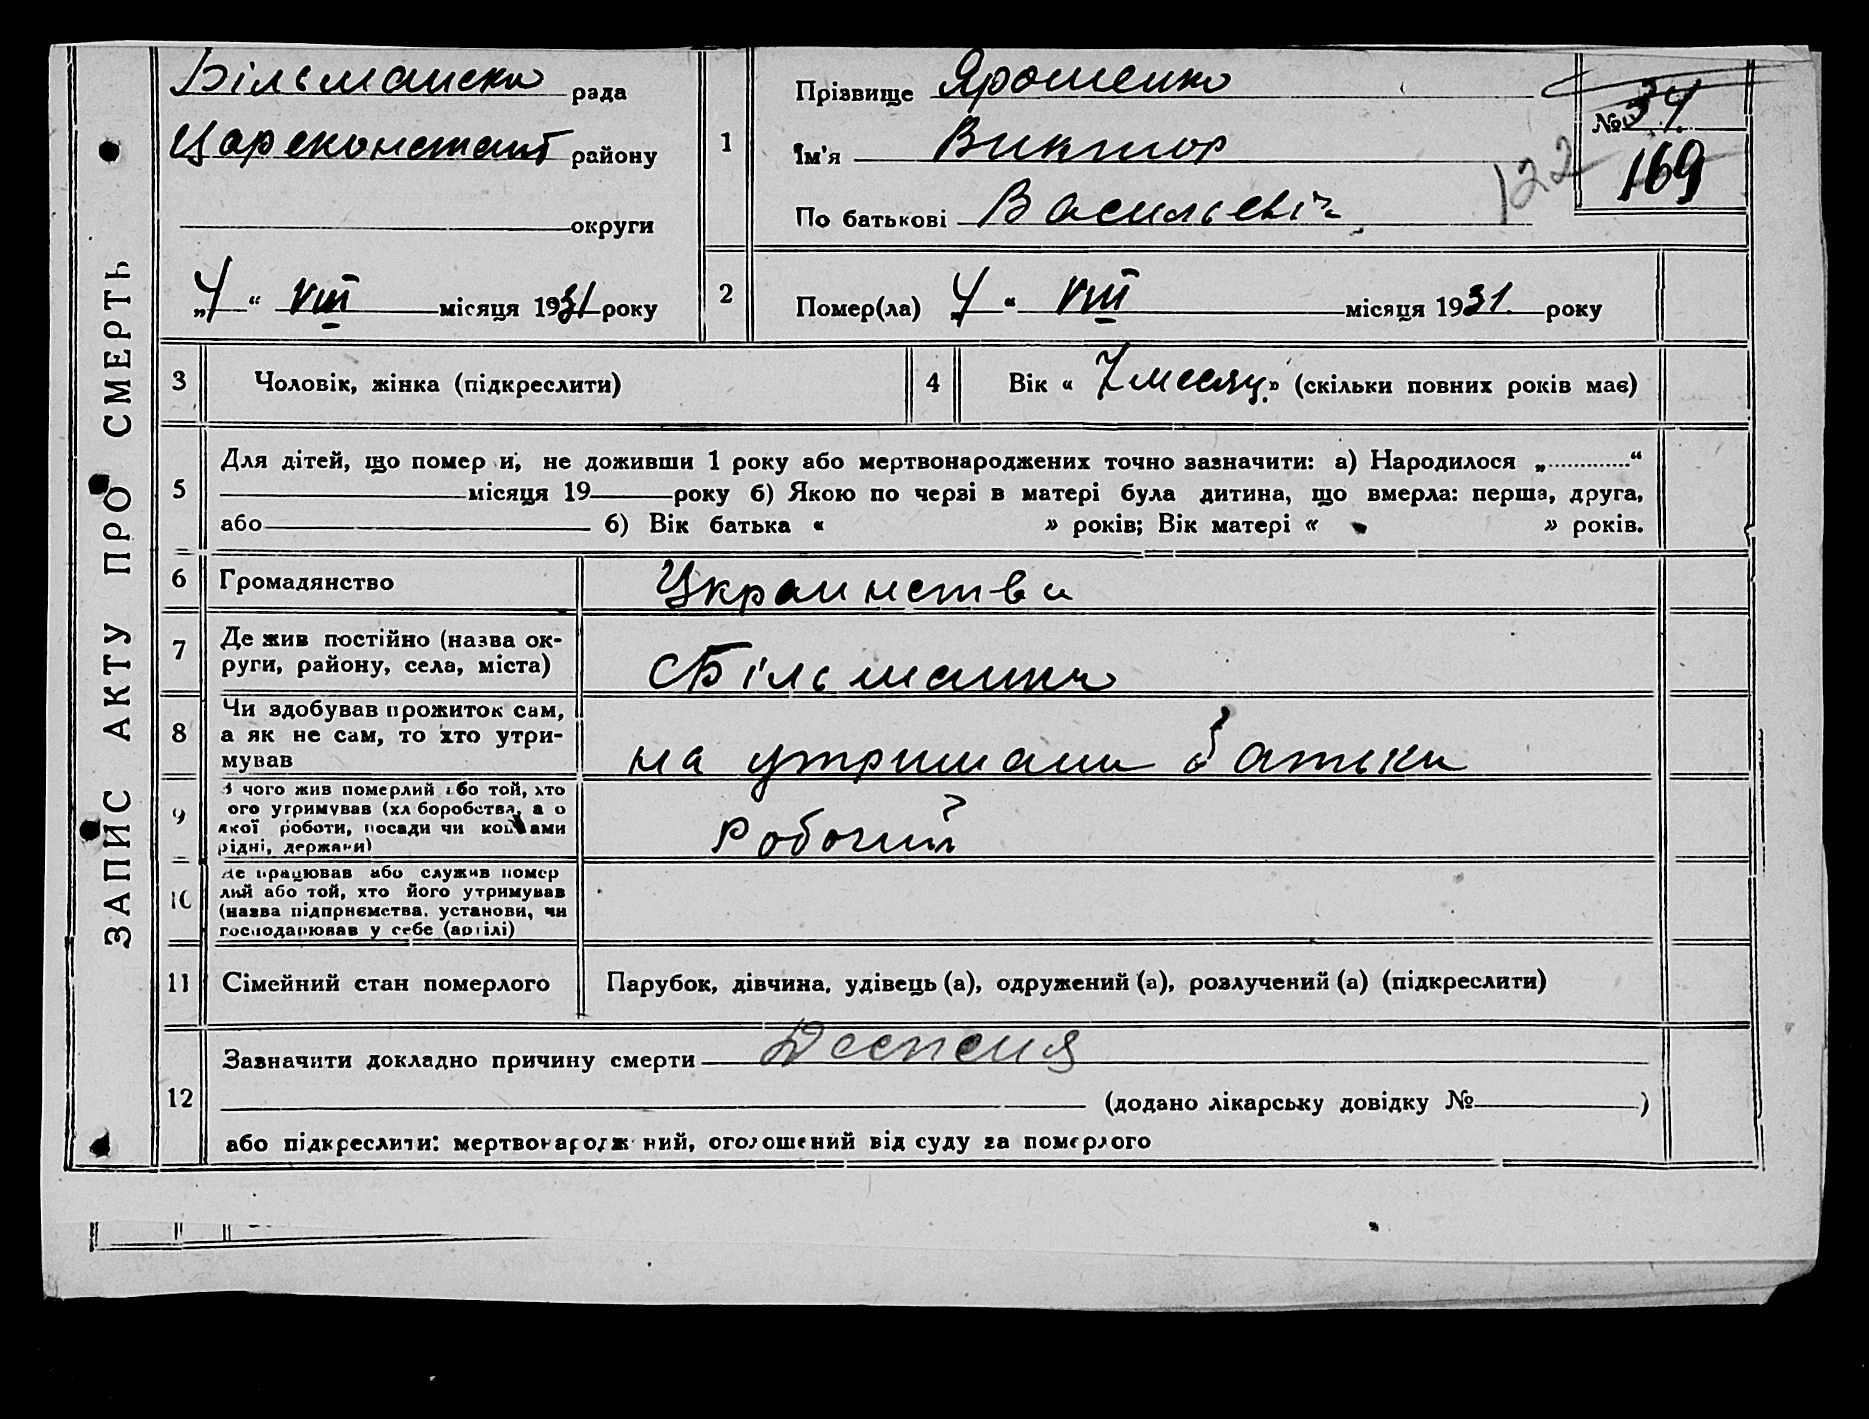 ЗАПИС АКТУ ПРО СМЕРТЬ
Більманска рада
Цареконстант району
округи
„4“ VIII місяця 1931 року
1
Прізвище Ярошенко
Їм'я Виктор
По батькові Васильевіч
№ 34
169
122
2
Помер(ла) „4“ VIII місяця 1931. року
3 Чоловік, жінка (підкреслити)
4 Вік « 7 месяц.» (скільки повних років має)
5 Для дітей, що померли, не доживши 1 року або мертвонароджених точно зазначити: а) Народилося „............“
місяця 19 року б) Якою по черві в матері була дитина, що вмерла: перша, друга,
або б) Вік батька « » років; Вік матері « » років.
6 Громадянство Украинства
7 Де жив постійно (назва ок-
руги, району, села, міста)
с Більманка
8 Чи здобував прожиток сам,
а як не сам, то хто утри-
мував
на утримани батьки
9 З чого жив померлий або той, хто
ого утримував (хл боробства, а о
якої роботи, посади чи коштами
рідні, держави)
Робочий
10 Де працював або служив помер
лий або той, хто його утримував
(назва підприємства, установи, чи
господарював у себе (артілі)
11 Сімейний стан померлого Парубок, дівчина, удівець (а), одружений (а), розлучений (а) (підкреслити)
12 Зазначити докладно причину смерти Деспепсия
(додано лікарську довідку № )
або підкреслити: мертвонароджений, оголошений від суду за померлого